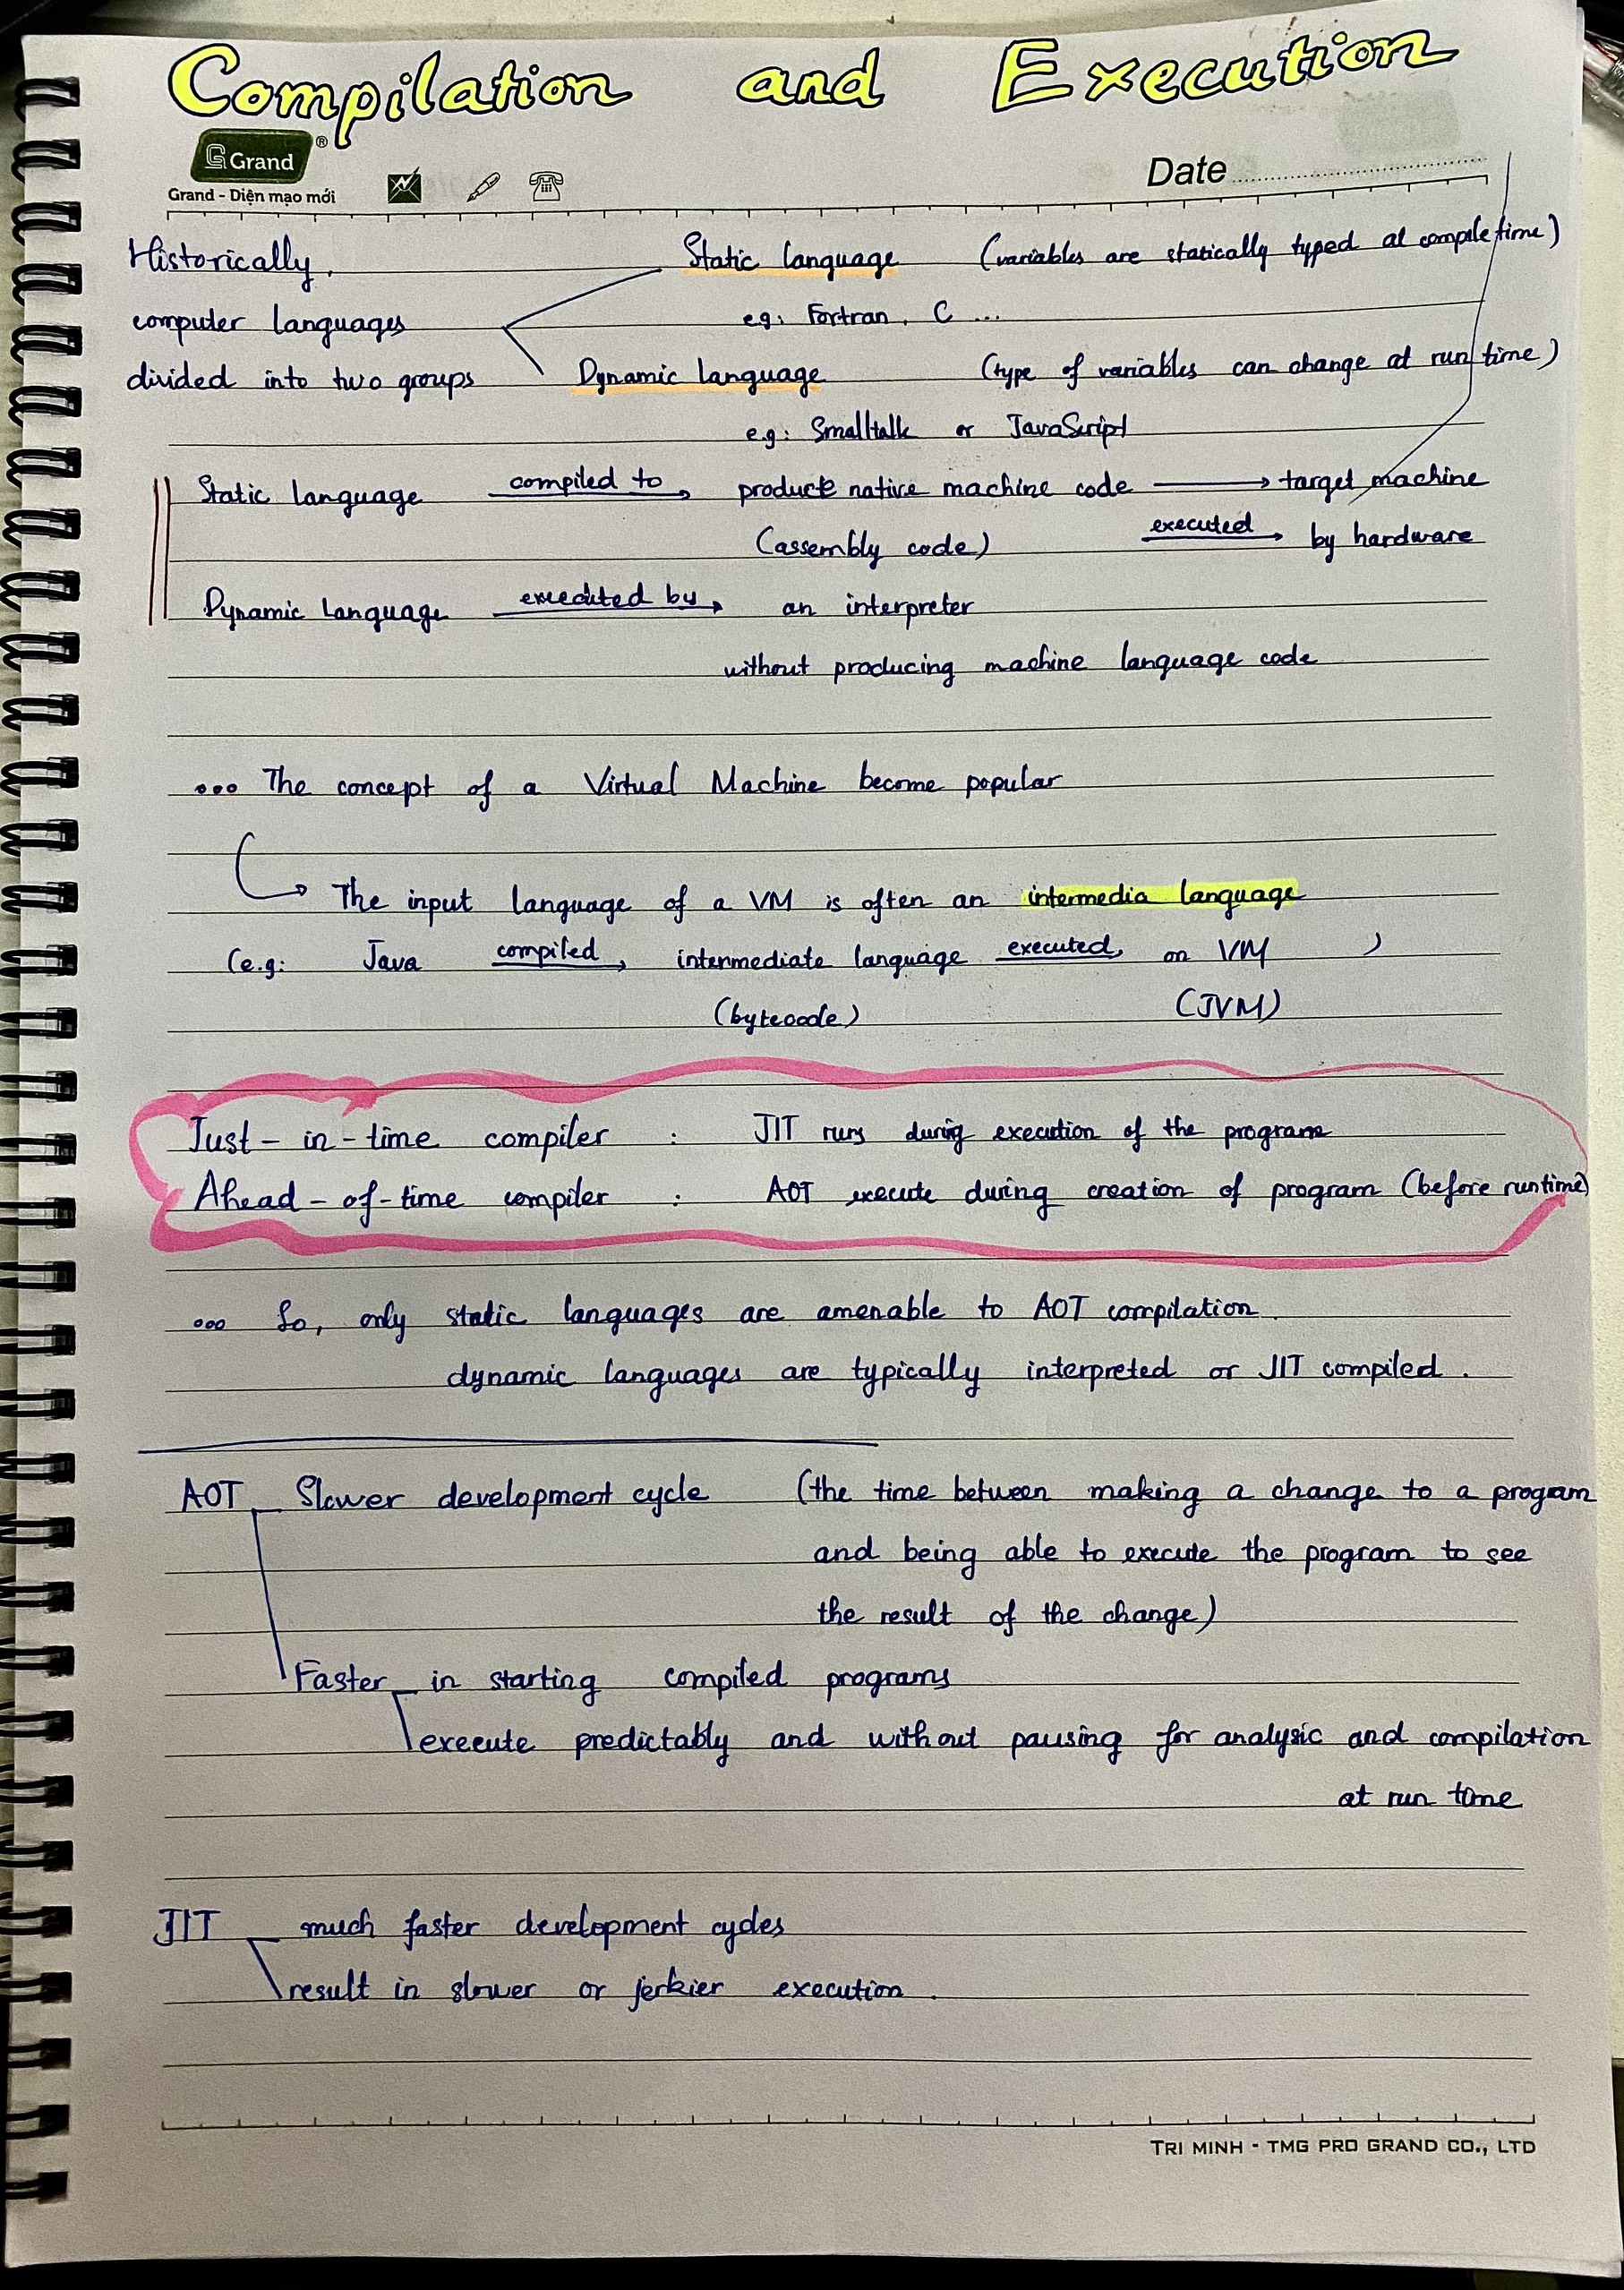 Compilation and Execution
G Grand ®
Grand - Diện mạo mới
Date
Historically, Static language (variables are statically typed at compile time)
computer languages eg: Fortran, C ...
divided into two groups Dynamic language (type of variables can change at run time)
e.g: Smalltalk or JavaScript
Static language compiled to producte native machine code → target machine
(assembly code) executed → by hardware
Dynamic Language executed by → an interpreter
without producing machine language code
ooo The concept of a Virtual Machine become popular
↳ The input language of a VM is often an intermedia language
(e.g: Java compiled → intermediate language executed → on VM )
(bytecode) (JVM)
Just-in-time compiler : JIT runs during execution of the program
Ahead-of-time compiler : AOT execute during creation of program (before runtime)
ooo So, only static languages are amenable to AOT compilation.
dynamic languages are typically interpreted or JIT compiled.
AOT Slower development cycle (the time between making a change to a program
and being able to execute the program to see
the result of the change)
Faster in starting compiled programs
execute predictably and without pausing for analysic and compilation
at run time
JIT much faster development cycles
result in slower or jerkier execution.
TRI MINH - TMG PRO GRAND CO., LTD